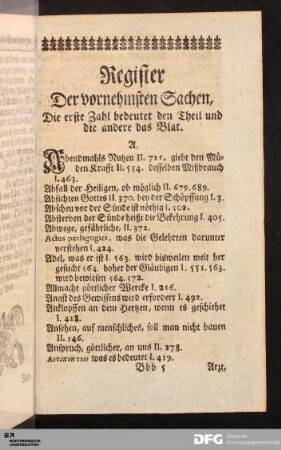 Register
Der vornehmsten Sachen,
Die erste Zahl bedeutet den Theil und
und die andere das Blat.
A.
Abendmahls Nutzen II. 725. giebt den Mü-
den Krafft II. 554. desselben Mißbrauch
I. 463.
Abfall der Heiligen, ob möglich II. 679. 689.
Absichten Gottes II. 370. bey der Schöpffung I. 3.
Abscheu vor der Sünde ist nöthig I. 502.
Absterben der Sünde heißt die Bekehrung I. 405.
Abwege, gefährliche, II. 372.
Actus pædagogici, was die Gelehrten darunter
verstehen I. 424.
Adel, was er ist I. 563. wird bisweilen weit her
gesucht 564. hoher der Gläubigen I. 551. 563.
wird bewiesen 564. 572.
Allmacht göttlicher Wercke I. 216.
Angst des Gewissens wird erfordert I. 492.
Anklopffen an dem Hertzen, wenn es geschiehet
I. 428.
Ansehen, auf menschliches, soll man nicht bauen
II. 146.
Anspruch, göttlicher, an uns II. 278.
was es bedeutet I. 419.
Bbb 5 Arze,
DFG Deutsche
Forschungsgemeinschaft